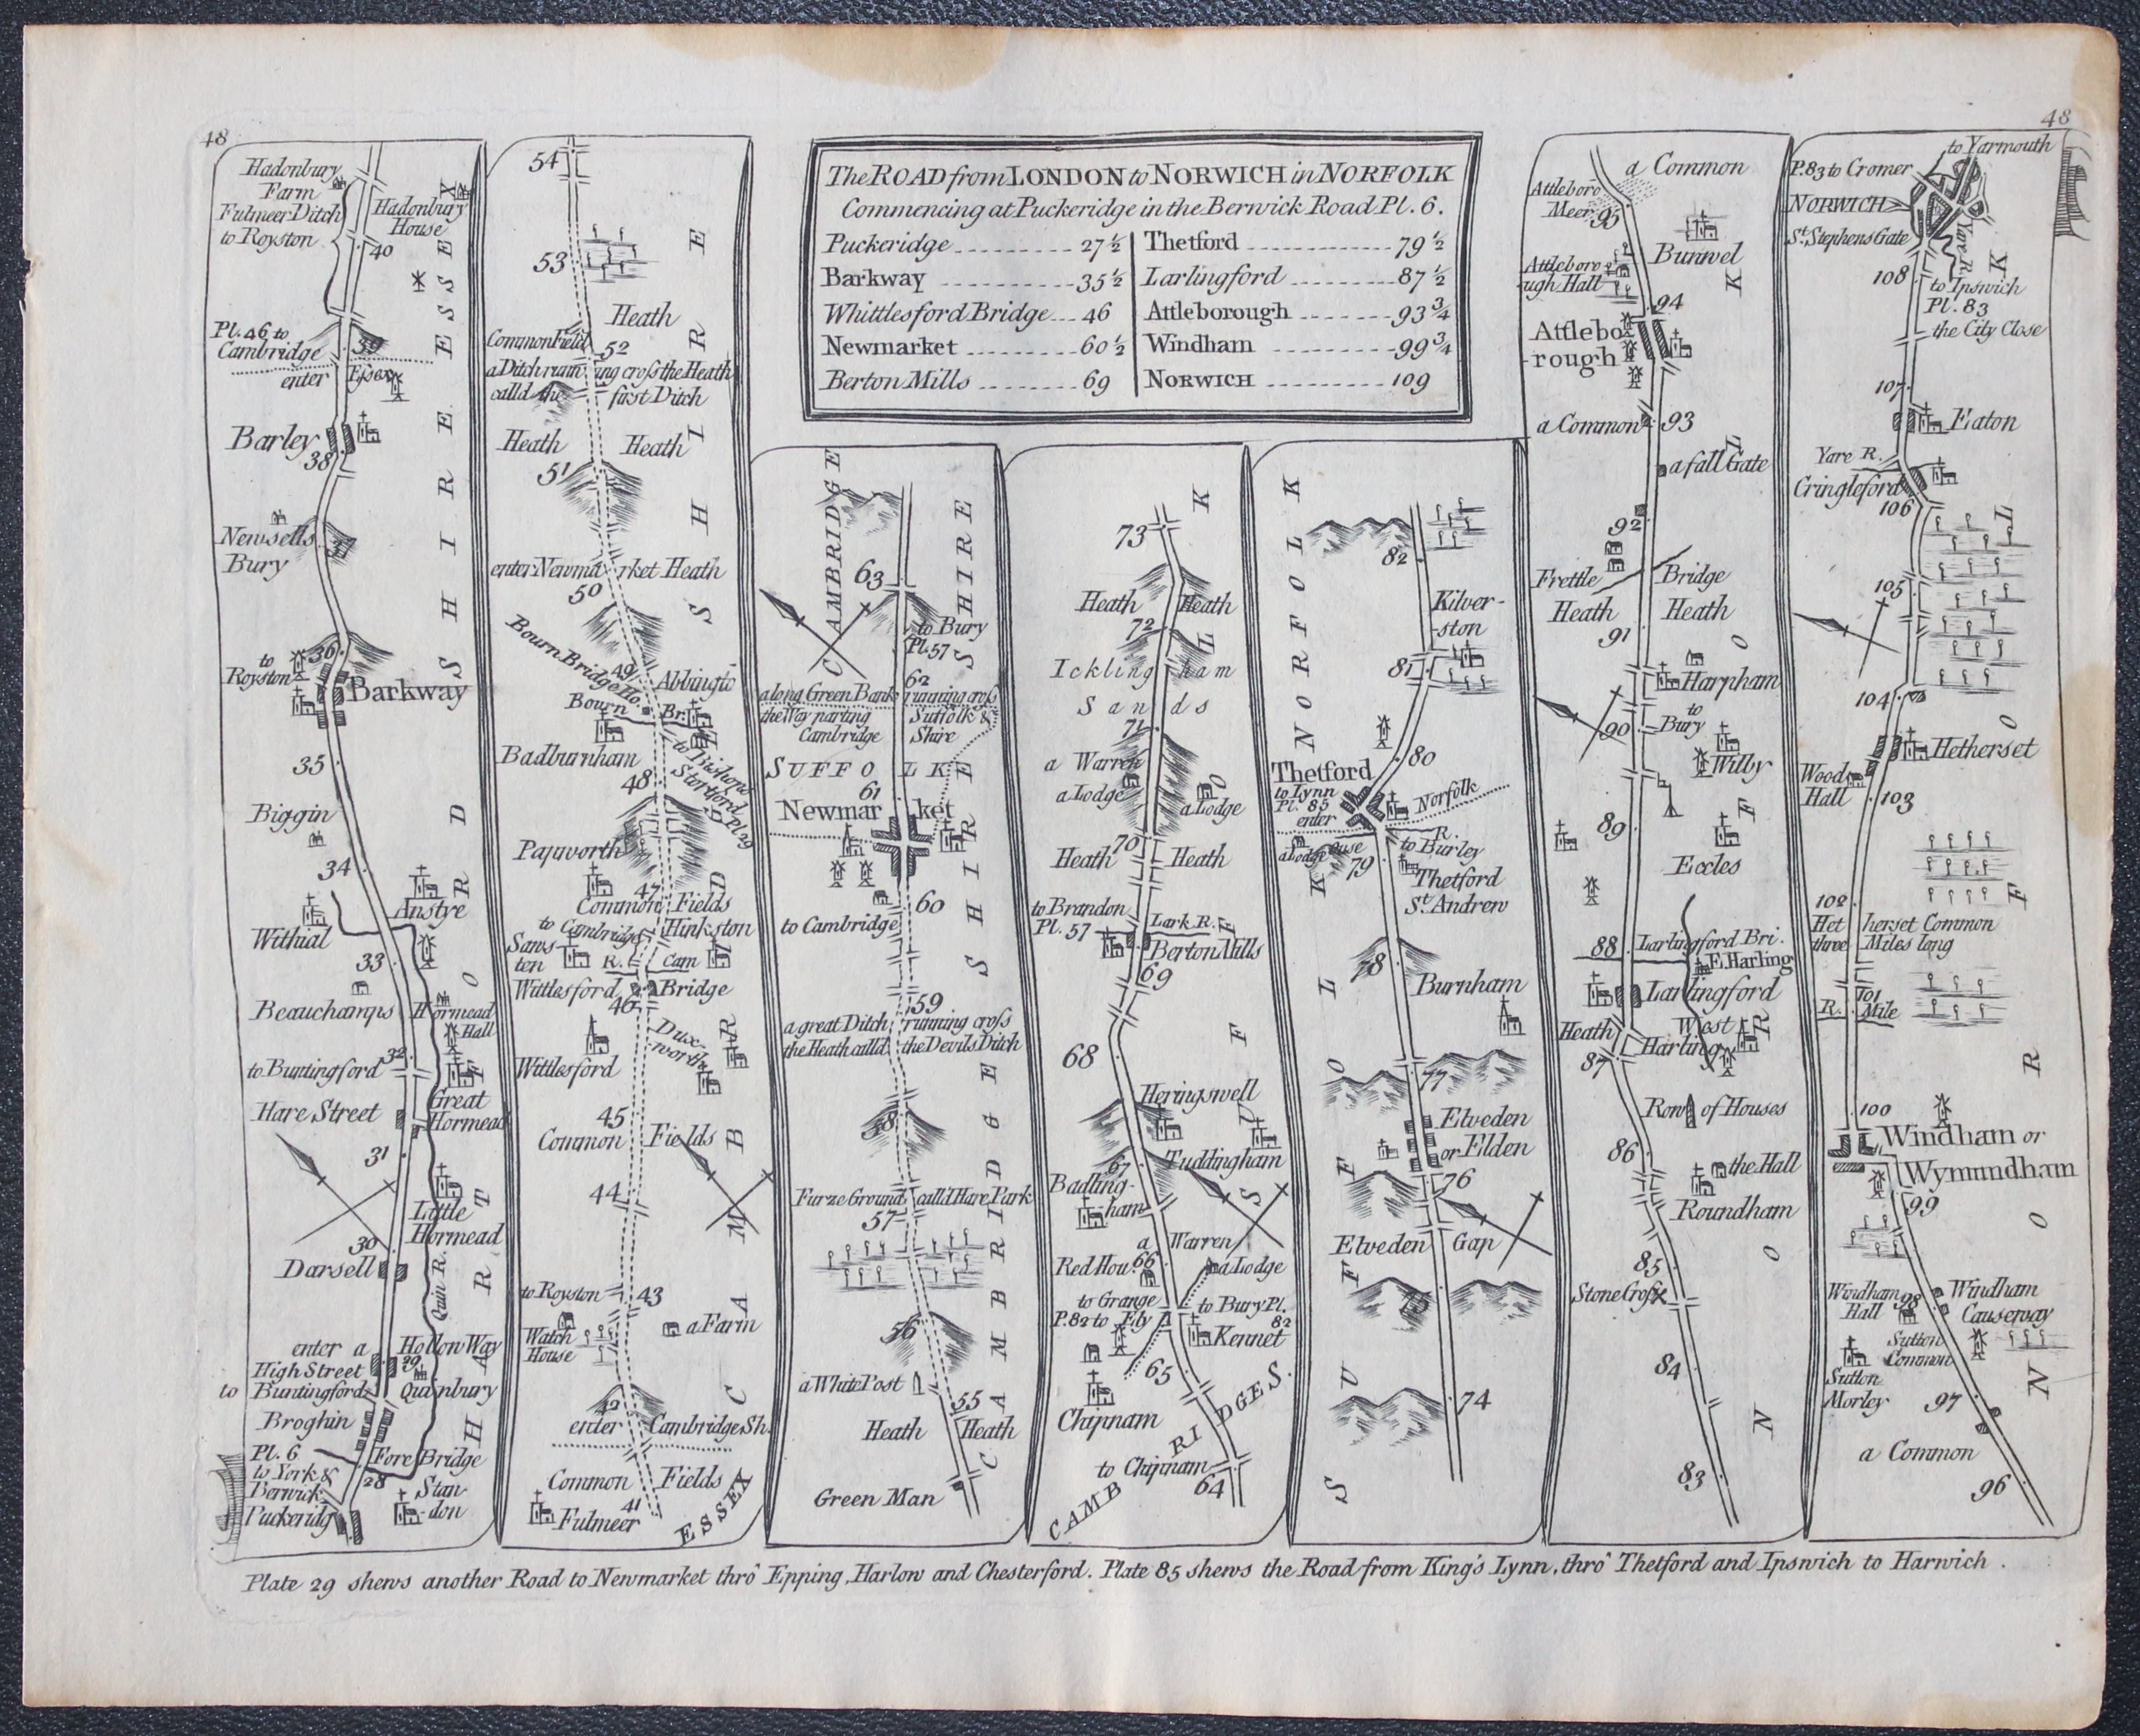 48
48
The ROAD from LONDON to NORWICH in NORFOLK
Commencing at Puckeridge in the Berwick Road Pl. 6.
Puckeridge 27½
Barkway 35½
Whittlesford Bridge 46
Newmarket 60½
Berton Mills 69
Thetford 79½
Larlingford 87½
Attleborough 93¾
Windham 99¾
NORWICH 109
Hadonbury
Farm
Fulmeer Ditch
to Royston
Hadonbury
House
40
Pl. 46 to
Cambridge
39
enter Essex
Barley
38
Newsells
Bury
37
to
Royston
36
Barkway
35
Biggin
34
Anstye
Withial
33
Beauchamps
Hormead
Hall
32
to Buntingford
Great
Hormead
Hare Street
31
Little
Hormead
30
Darsell
Quin R.
enter a Hollow Way
High Street
29
to Buntingford
Quinbury
Broghin
Pl. 6
to York &
Berwick
Fore Bridge
28
Stan
-don
Puckeridg
ESSEX
HARTFORDSHIRE
54
53
Heath
Common Field
52
a Ditch runn ing cross the Heath
calld the first Ditch
Heath Heath
51
enter Newma rket Heath
50
Bourn Bridge Ho.
49
Abbingto
Bourn Br.
Badburnham
to Bishops
Stortford Pl. 29
48
Papworth
47
Common Fields
to Cambridge
Hinkston
Saws-
ten
R. Cam
Wittlesford Bridge
46
Dux-
worth
Wittlesford
45
Common Fields
44
to Royston
43
Watch
House
a Farm
42
enter Cambridge Sh.
Common Fields
41
Fulmeer
ESSEX
CAMBRIDGESHIRE
63
to Bury
Pl. 57
62
along Green Bank running cross
the Way parting Suffolk &
Cambridge Shire
SUFFOLK
61
Newmar ket
60
to Cambridge
59
a great Ditch running cross
the Heath calld the Devils Ditch
58
Furze Ground call'd Hare Park
57
56
a White Post
55
Heath Heath
Green Man
CAMBRIDGE SHIRE
CAMBRIDGESHIRE
73
Heath Heath
72
Ickling ham
Sands
71
a Warren
a Lodge
a Lodge
70
Heath Heath
to Brandon
Pl. 57
Lark R.
Berton Mills
69
68
Heringswell
67
Tuddingham
Badling-
ham
a Warren
Red Hou.
66
a Lodge
to Grange
P. 82 to Ely
to Bury Pl.
82
Kennet
65
Chipnam
to Chipnam
64
CAMBRIDGES.
SUFFOLK
82
Kilver-
-ston
81
80
Thetford
to Lynn
Pl. 85
enter
Norfolk
a Lodge
Ouse R.
79
to Burley
Thetford
St. Andrew
78
Burnham
77
Elveden
or Elden
76
Elveden Gap
75
74
NORFOLK
SUFFOLK
a Common
Attleboro
Meer
95
Bunwel
Attleboro
ugh Hall
94
Attlebo
-rough
a Common
93
a fall Gate
92
Frettle Bridge
Heath Heath
91
Harpham
to
Bury
90
Wilby
89
Eccles
88
Larlingford Bri.
E. Harling
Larlingford
Heath
West
Harling
87
Row of Houses
86
the Hall
Roundham
85
Stone Cross
84
83
NORFOLK
to Yarmouth
P. 83 to Cromer
NORWICH
St. Stephens Gate
Yar R.
108
to Ipswich
Pl. 83
the City Close
107
Eaton
Yare R.
Cringleford
106
105
104
Hetherset
Wood
Hall
103
102
Het herset Common
three Miles long
101
R. Mile
100
Windham or
Wymundham
99
Windham
Hall
98
Windham
Causeway
Sutton
Common
Sutton
Morley
97
a Common
96
NORFOLK
Plate 29 shews another Road to Newmarket thro' Epping, Harlow and Chesterford. Plate 85 shews the Road from King's Lynn, thro' Thetford and Ipswich to Harwich.